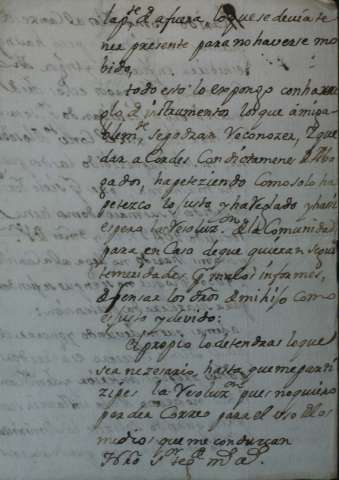 la p.te d afuera, lo que se devia te
ner presente para no haverse mo
bido,
todo esto lo expongo con
plo d instrumentos los que amiga
blem.te se podran Reconozer, y que
dar acordes con dictamene d Abo
gados, apeteziendo como solo ha
petezco lo justo y
espero la Resoluz.on de la Comunidad
para en Caso de que quieran seguir
temeridades y malos informes,
defensar los dros de mi hijo como
es justo y devido:
El propio lo detendras lo que
sea nezesario, hasta que me parti
zipes la Resoluz.on pues no quiero
perder Correo para el uso de los
medios que me conduzcan